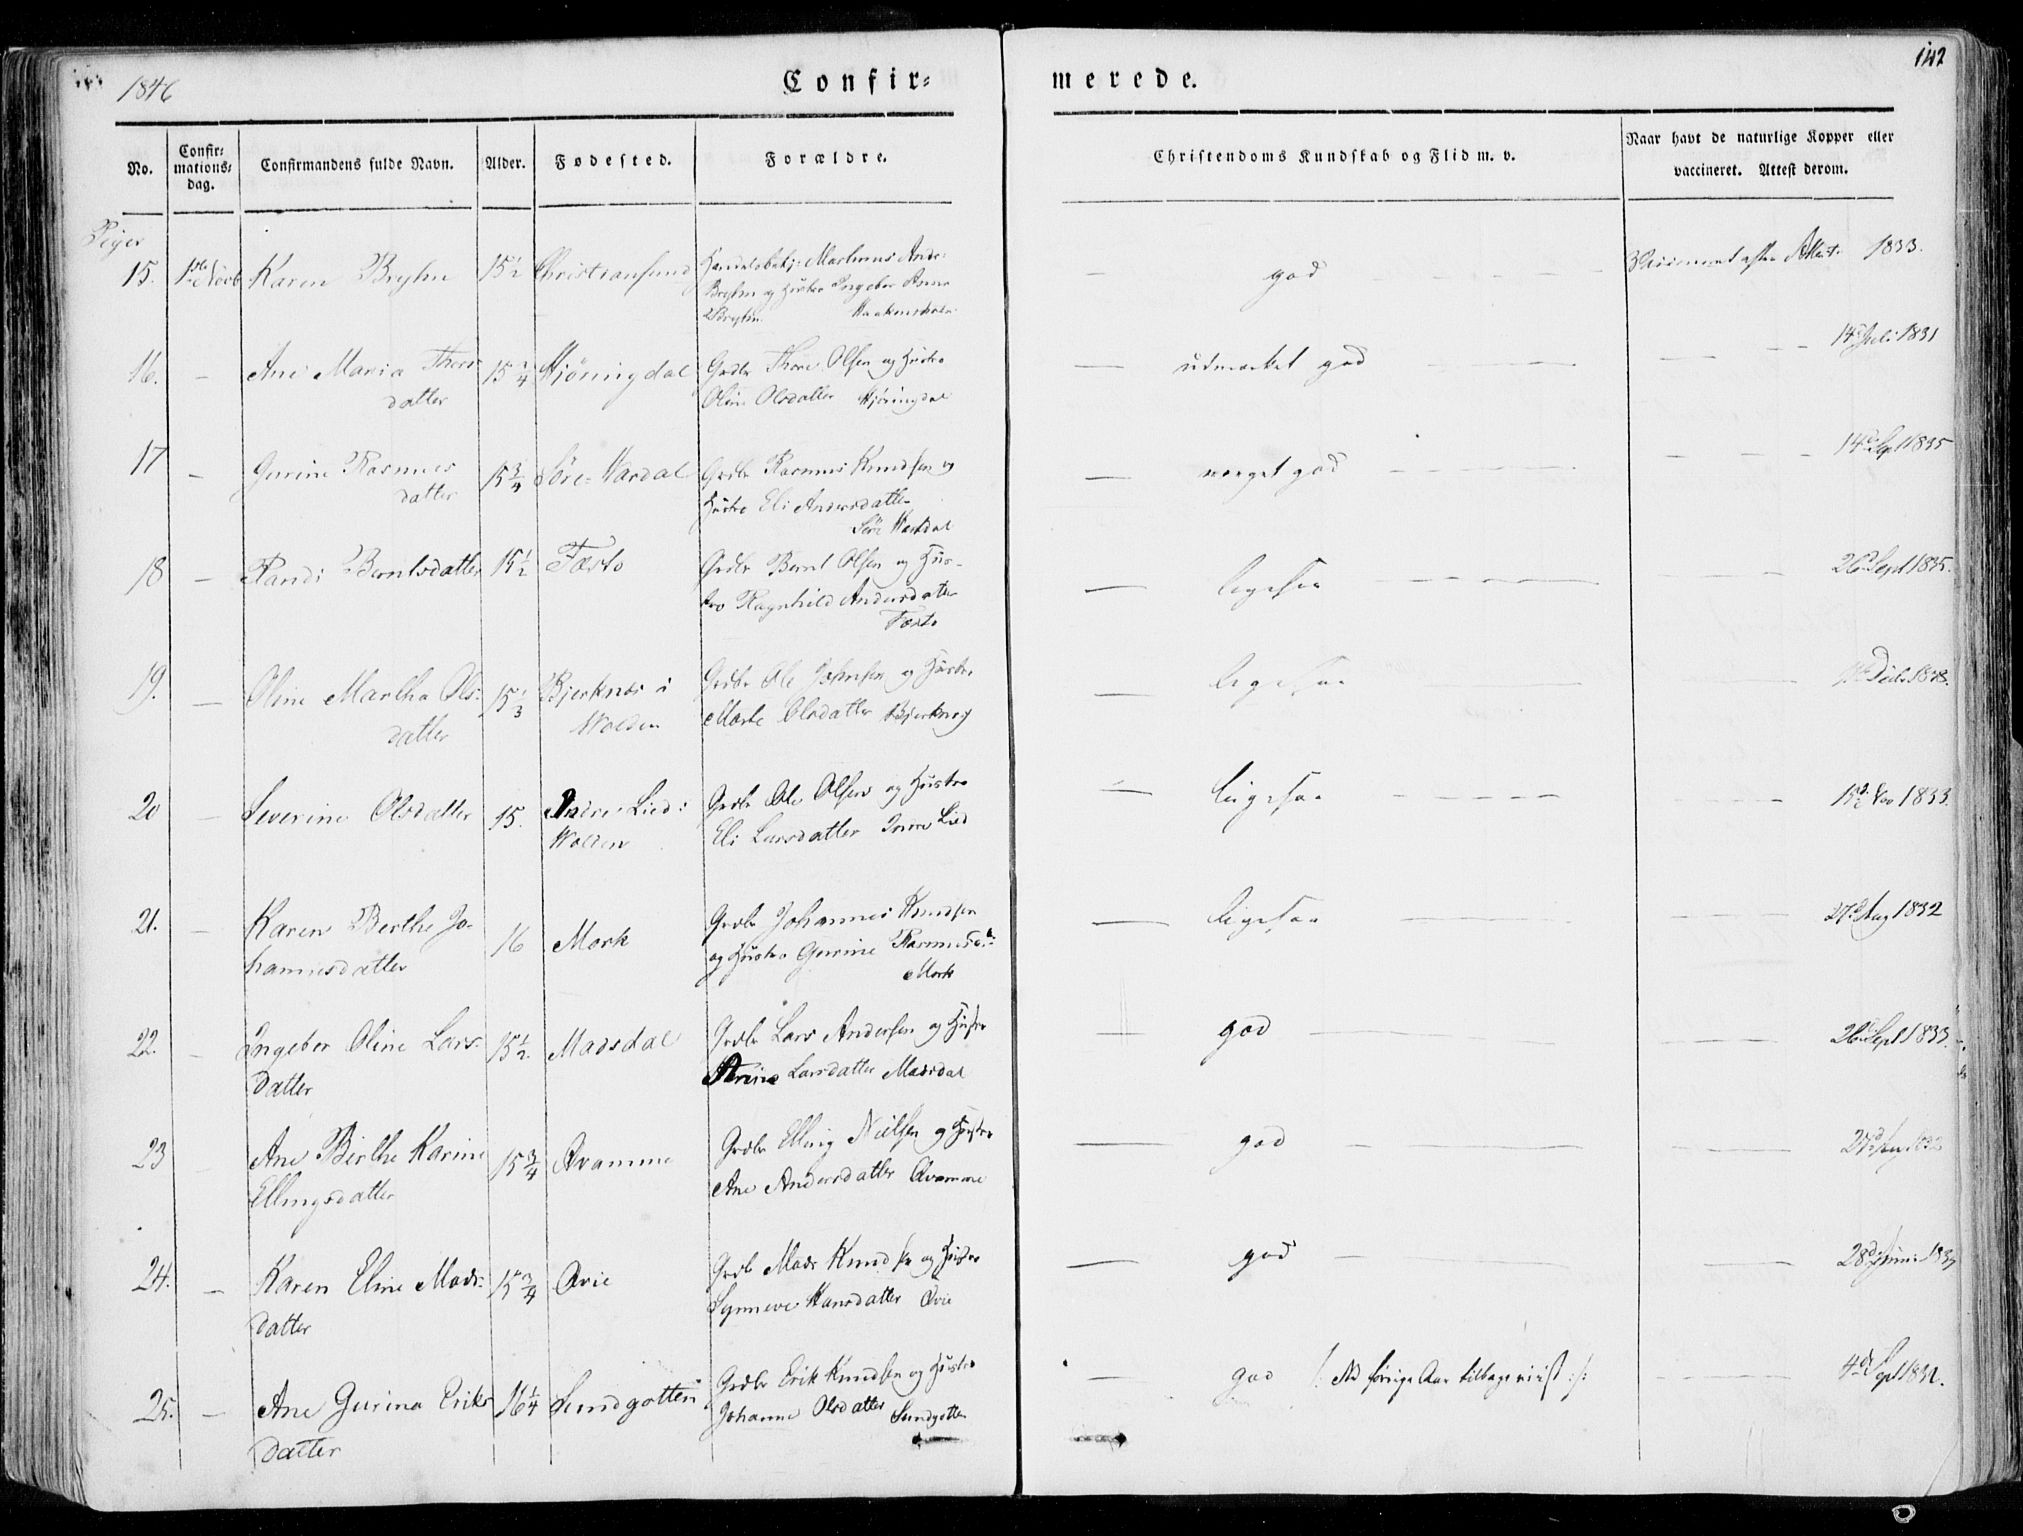 1846
Confir=
merede.
142
No.
Confir=
mations=
dag.
Confirmandens fulde Navn.
Alder.
Fødested.
Forældre.
Christendoms Kundskab og Flid m. v.
Naar havt de naturlige Kopper eller
vaccineret. Attest derom.
Piger
15. Karen Bryhn 15½ Christiansund
og Hustro Ingebor
Bryhn
god
1833.
16. – Ane Maria Thors
datter
15¾ Hjöringdal
Grdbr Thore Olsen og Hustro
Oline Olsdatter Hjöringdal
udmærket god
14d Juli 1831
17 – Gurine Rasmus
datter
15¾ Söre-Hardal
Grdbr Rasmus Knudsen og
Hustro Eli Andersdatter
Söre
meget god
14d Sept 1835
18 – Randi Berntsdatter 15½ Fæsto
Grdbr Bernt Olsen og Hus-
tro Ragnhild Andersdatter
Fæsto
ligesaa
26d Sept 1835.
19. – Oline Martha Ols-
datter
15⅓ Bjerknæs i
Wolden
Grdbr Ole Johnsen og Hustro
Marte Olsdatter
ligesaa
20 – Severine Olsdatter 15. Lied i
Wolden
Grdbr Ole Olsen og Hustro
Eli Larsdatter Lied
ligesaa
1833.
21. – Karen Berthe Jo-
hannesdatter
16 Mork
Grdbr Johannes Knudsen
og Hustro Gurine Rasmusdtr
Mork
ligesaa
27d Aug 1832
22. – Ingebor Oline Lars-
datter
15½. Madsdal
Grdbr Lars Andersen og Hustro
Larsdatter Madsdal
god
26d Sept 1835.
23 – Ane Birthe Karine
Ellingsdatter
15¾ Avamme
Grdbr Elling Nielsen og Hustro
Ane Andersdatter Avamme
god
24. – Karen Eline Mads-
datter
15¾ Øvie
Grdbr Mads Knudsen og Hustro
Synneve Hansdatter Øvie
god
25. – Ane Gurina Eriks
datter
16¼ Sundgotten
Grdbr Erik Knudsen og Hustro
Johanne Olsdatter Sundgotten
god /: NB forrige Aar tilbageviist :/:
4de Sept 1832.